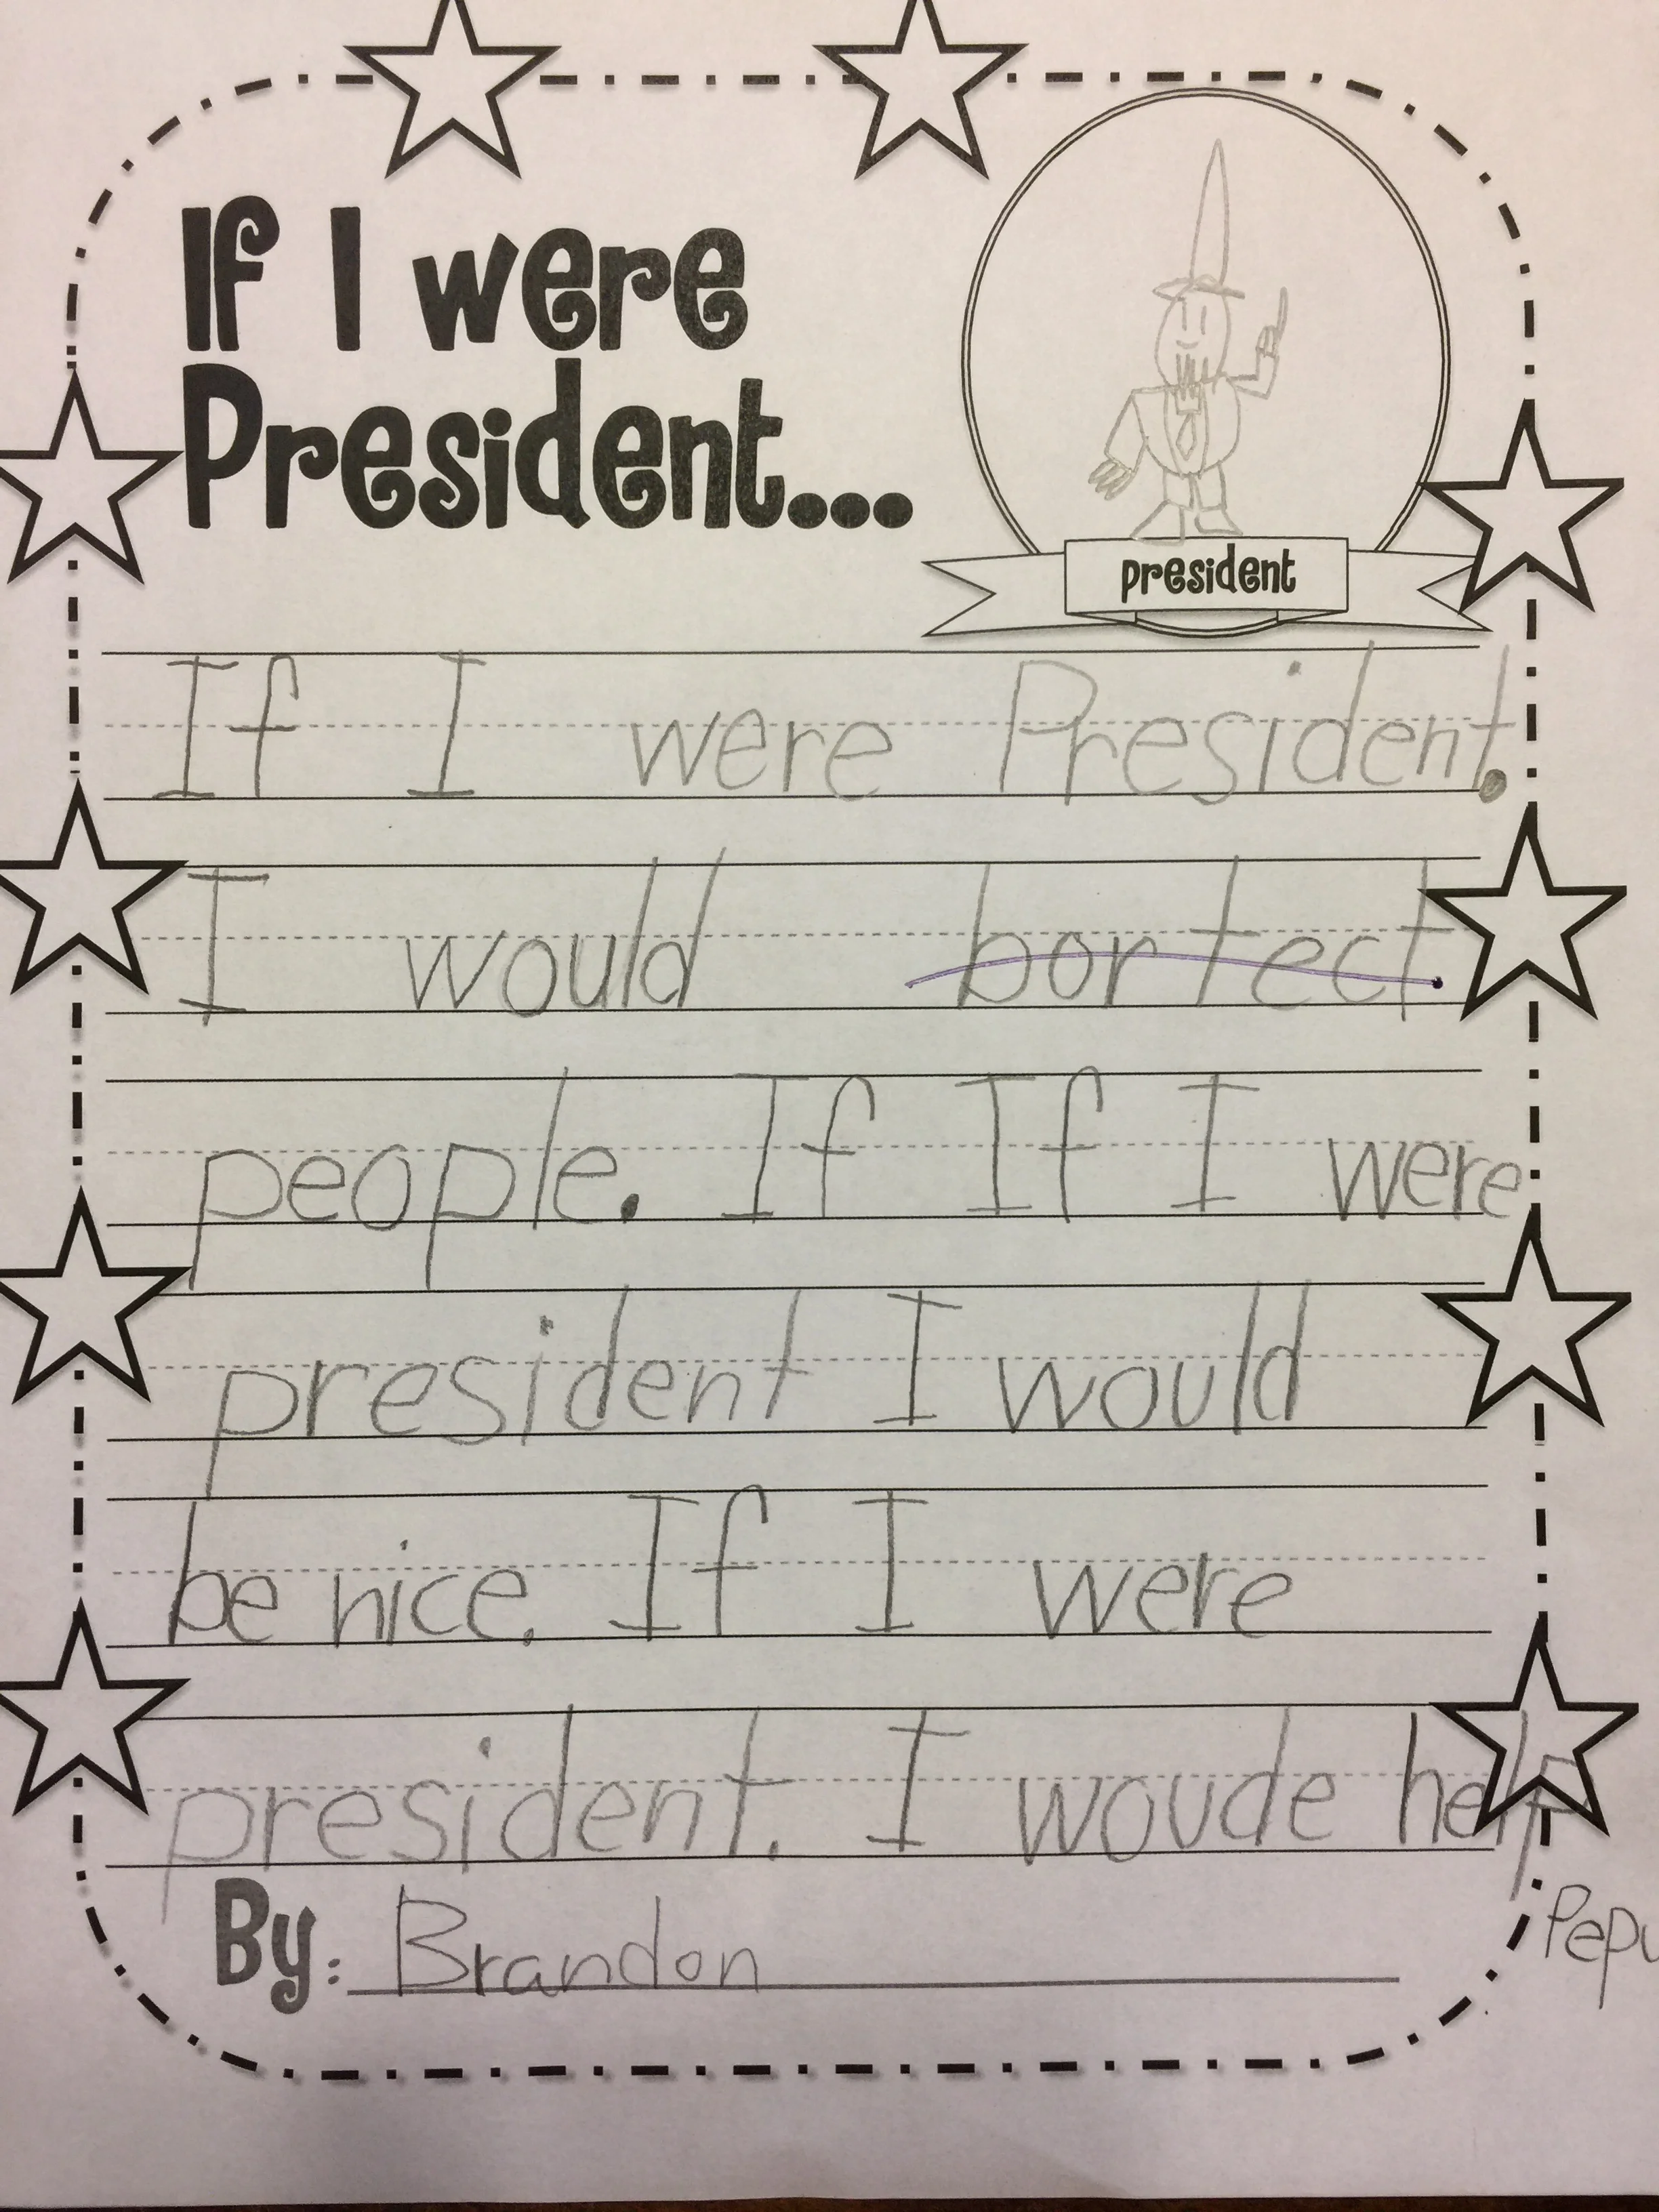 If I were
President...
president
If I were President.
I would bortect.
people. If If I were
president I would
be nice. If I were
president. I woude help
By: Brandon